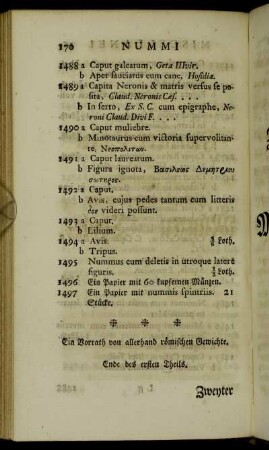 170 NUMMI
1488 a Caput galeatum, Geta IIIvir.
b Aper sauciatus cum cane, Hosidia.
1489 a Capita Neronis & matris versus se po-
sita, Claud. Neronis Cæs. . . .
b In serto, Ex S. C. cum epigraphe, Ne-
roni Claud. Divi F. . . .
1490 a Caput muliebre.
b Minotaurus cum victoria supervolitan-
te. Νεοπολιτων.
1491 a Caput laureatum.
b Figura ignota, Βασιλεως Δημητριου
σωτηρος.
1492 a Caput.
b Avis, cujus pedes tantum cum litteris
videri possunt.
1493 a Caput.
b Lilium.
1494 a Avis. Loth.
b Tripus.
1495 Nummus cum deletis in utroque latere
figuris. Loth.
1496 Ein Papier mit 60 kupfernen Münzen.
1497 Ein Papier mit nummis spintriis. 21
Stücke.
Ein Vorrath von allerhand römischen Gewichte.
Ende des ersten Theils.
Zweyter